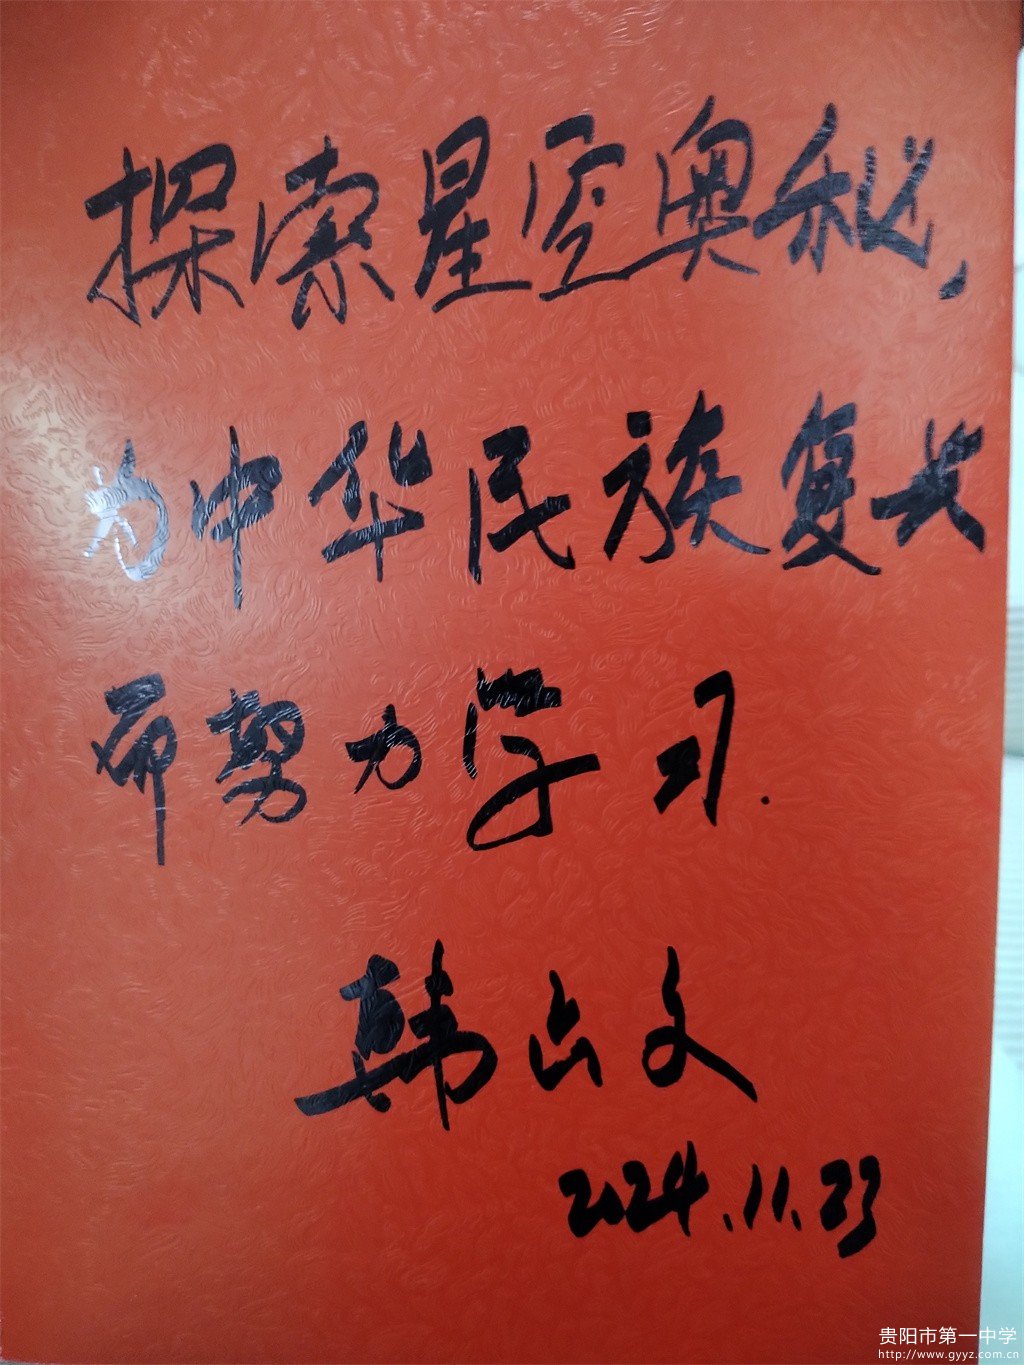 探索星空奥秘,
为中华民族复兴
而努力学习.
韩占文
2024.11.23
贵阳市第一中学
http://www.gyyz.com.cn